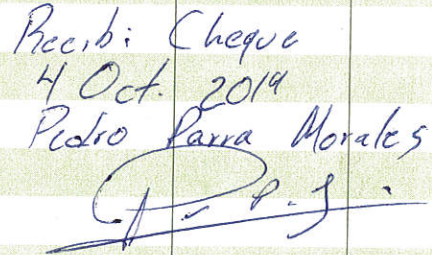 Recibi Cheque
4 Oct. 2019
Pedro Parra Morales